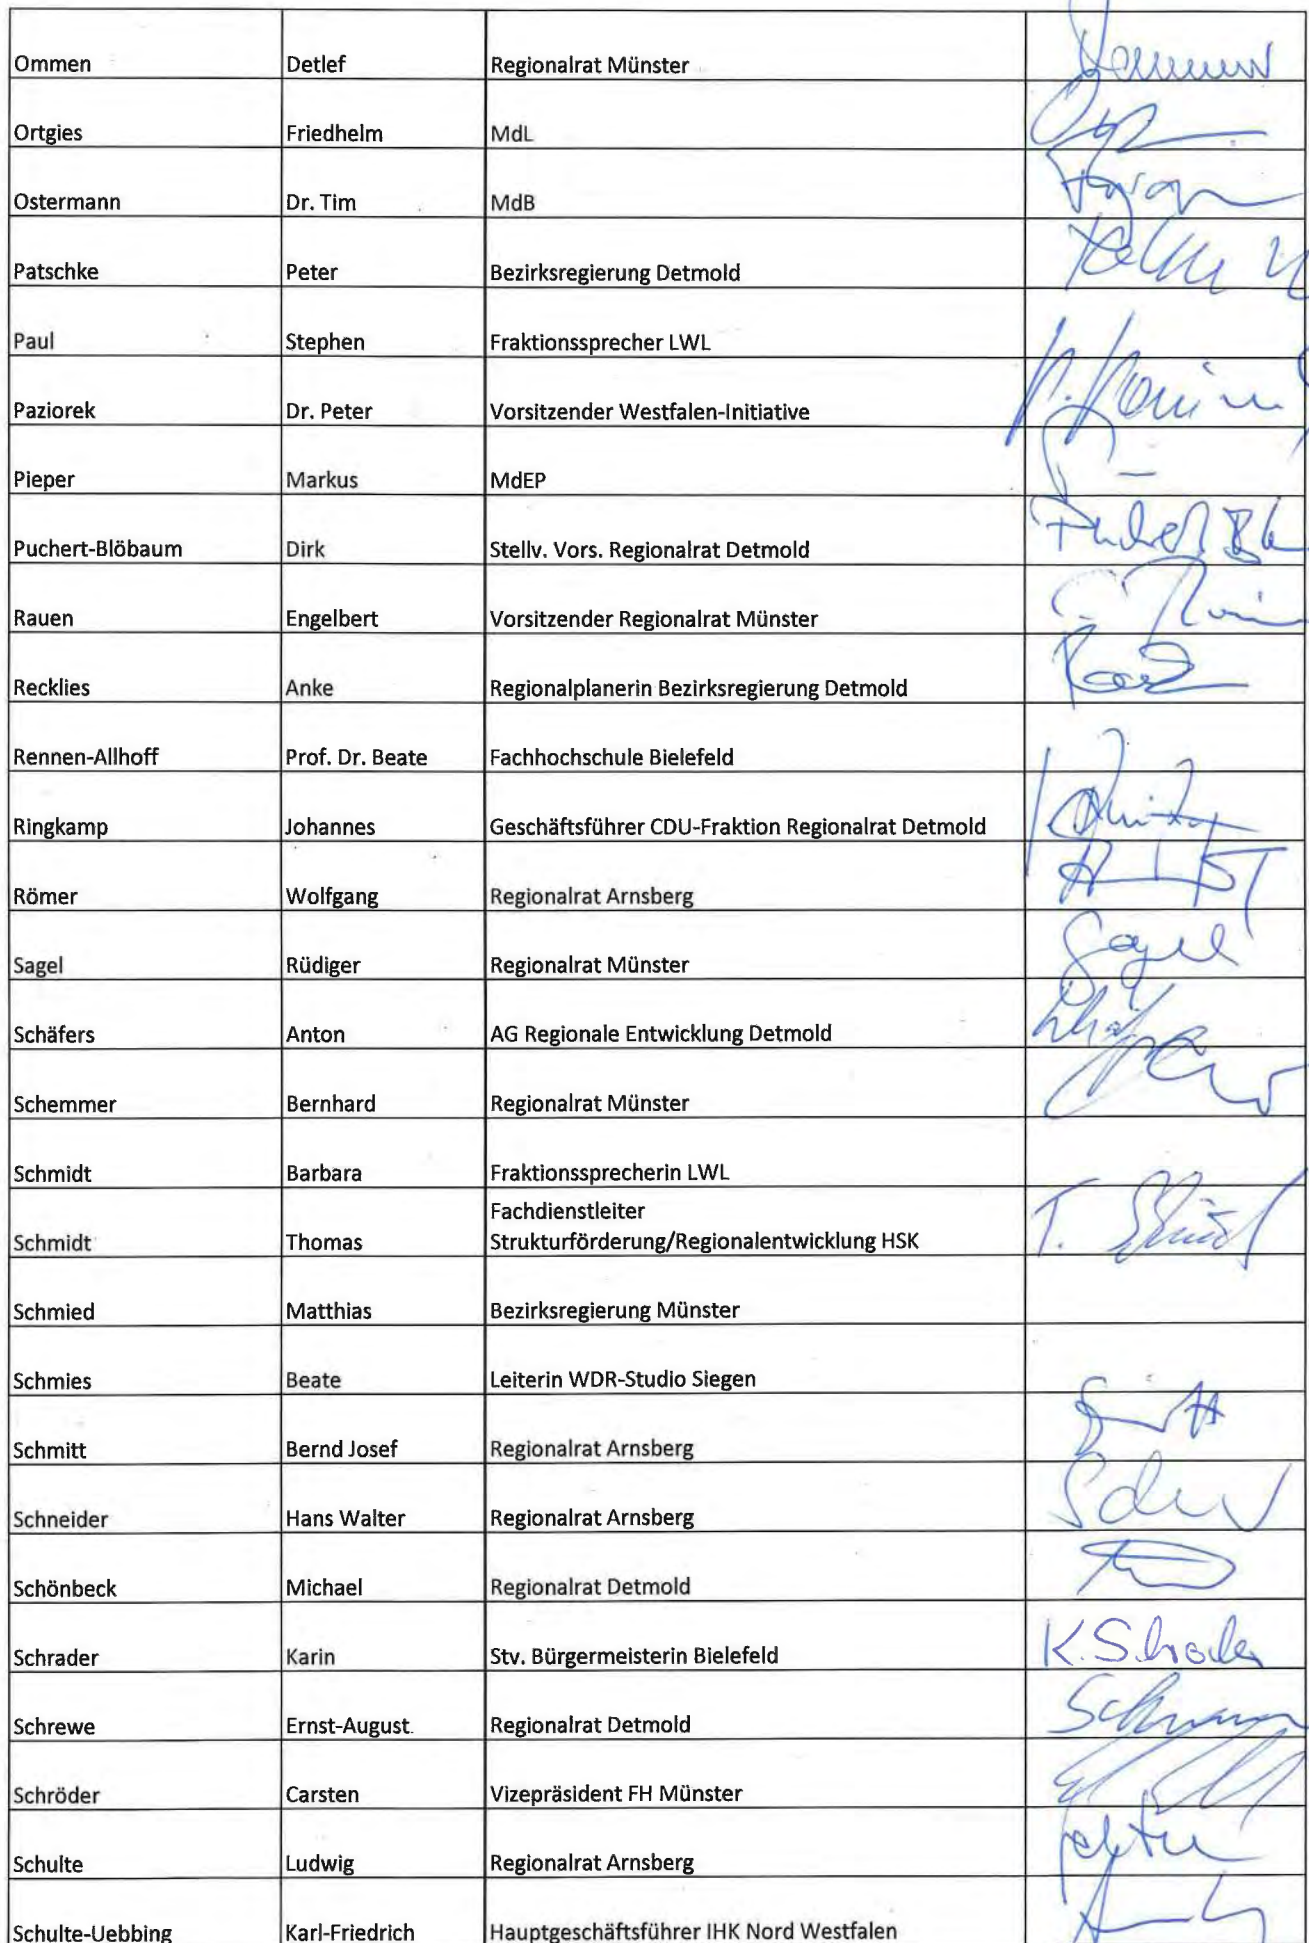 Ommen Detlef Regionalrat Münster
Ortgies Friedhelm MdL
Ostermann Dr. Tim MdB
Patschke Peter Bezirksregierung Detmold
Paul Stephen Fraktionssprecher LWL
Paziorek Dr. Peter Vorsitzender Westfalen-Initiative
Pieper Markus MdEP
Puchert-Blöbaum Dirk Stellv. Vors. Regionalrat Detmold
Rauen Engelbert Vorsitzender Regionalrat Münster
Recklies Anke Regionalplanerin Bezirksregierung Detmold
Rennen-Allhoff Prof. Dr. Beate Fachhochschule Bielefeld
Ringkamp Johannes Geschäftsführer CDU-Fraktion Regionalrat Detmold
Römer Wolfgang Regionalrat Arnsberg
Sagel Rüdiger Regionalrat Münster Sagel
Schäfers Anton AG Regionale Entwicklung Detmold
Schemmer Bernhard Regionalrat Münster
Schmidt Barbara Fraktionssprecherin LWL
Fachdienstleiter
Schmidt Thomas Strukturförderung/Regionalentwicklung HSK T. Schmidt
Schmied Matthias Bezirksregierung Münster
Schmies Beate Leiterin WDR-Studio Siegen
Schmitt Bernd Josef Regionalrat Arnsberg
Schneider Hans Walter Regionalrat Arnsberg
Schönbeck Michael Regionalrat Detmold
Schrader Karin Stv. Bürgermeisterin Bielefeld K. Schrader
Schrewe Ernst-August Regionalrat Detmold
Schröder Carsten Vizepräsident FH Münster
Schulte Ludwig Regionalrat Arnsberg
Schulte-Uebbing Karl-Friedrich Hauptgeschäftsführer IHK Nord Westfalen